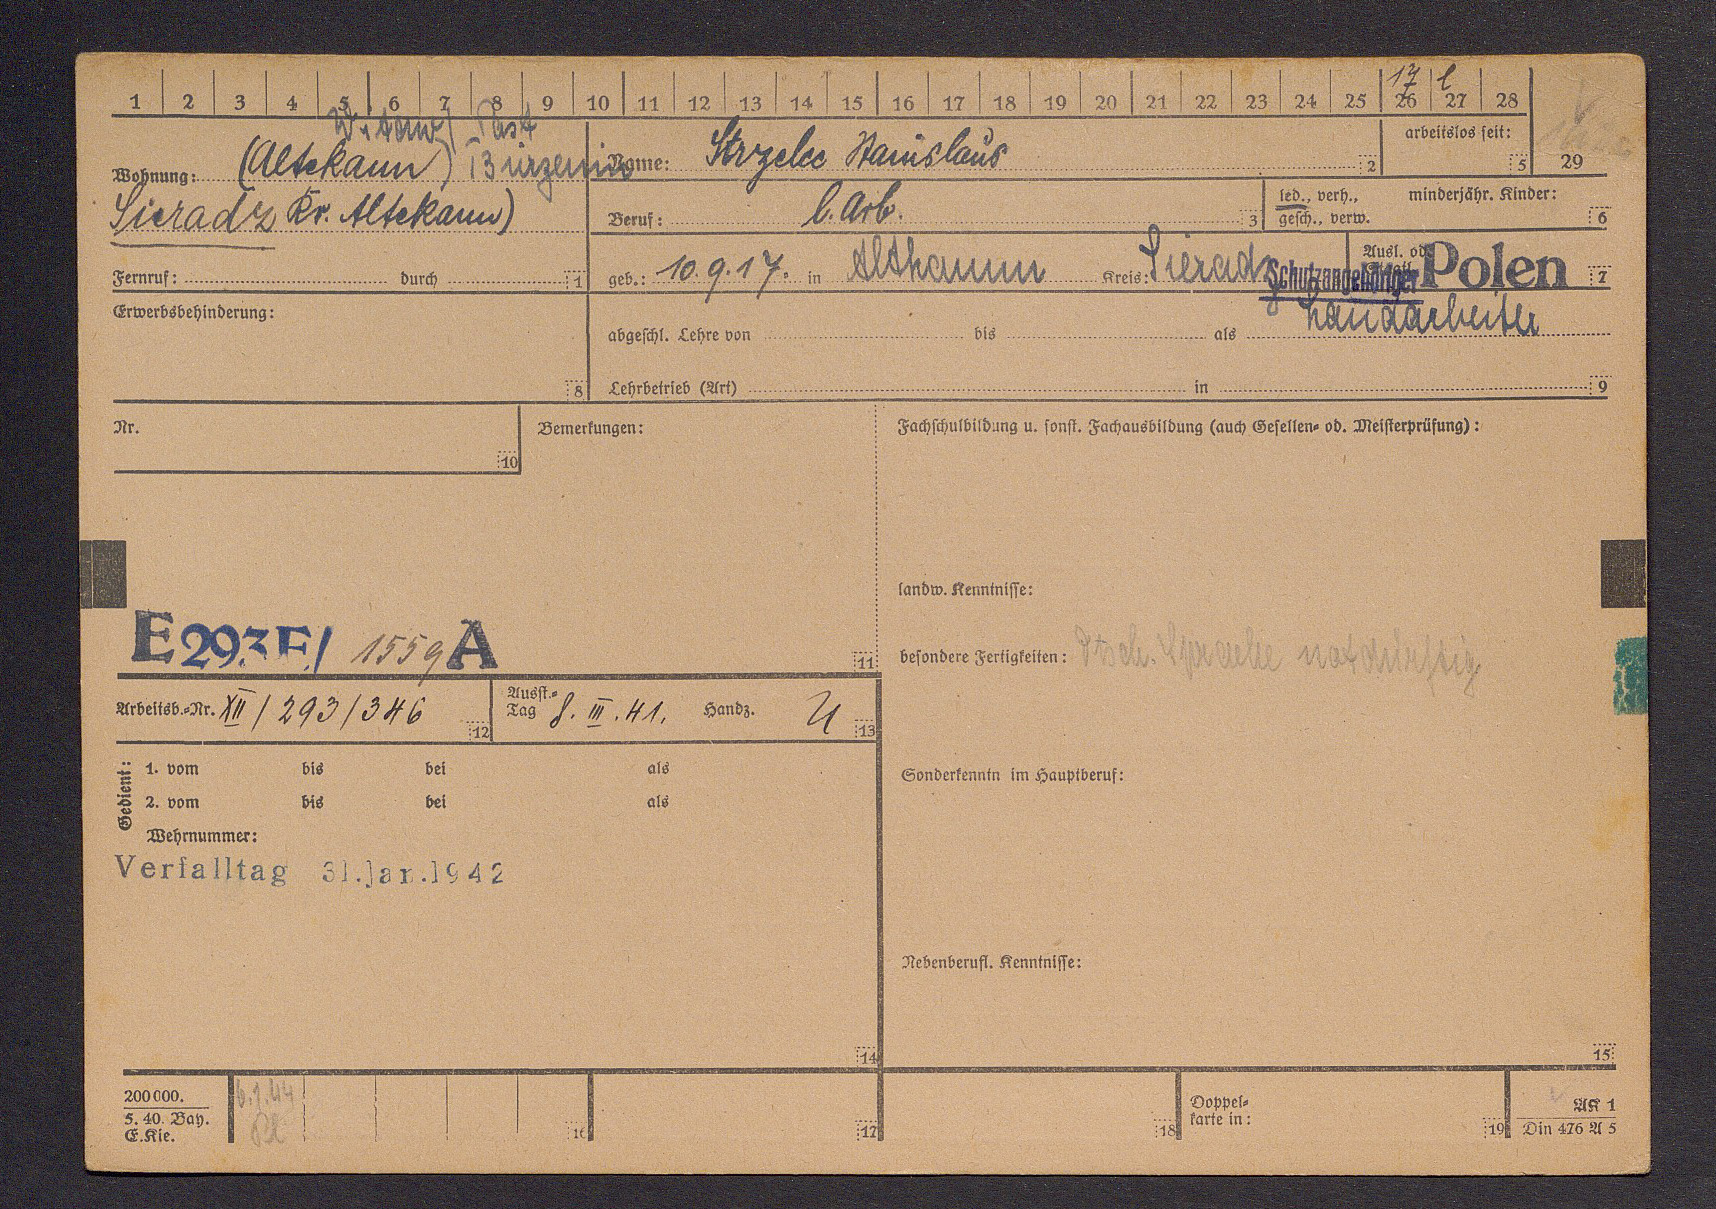 17 l
1 2 3 4 5 6 7 8 9 10 11 12 13 14 15 16 17 18 19 20 21 22 23 24 25 26 27 28
29
Witow) Post
Wohnung: (Altekann) Burzenin
Sieradz Kr. Altekann)
Fernruf: durch 1
Name: Strzelec Stanislaus 2
arbeitslos seit: 5
Beruf: l. Arb. 3
led., verh., gesch., verw.
minderjähr. Kinder: 6
geb.: 10.9.17. in Althamm Kreis: Sieradz
Ausl. od.
Schutzangehöriger Polen 7
Erwerbsbehinderung: 8
Landarbeiter
abgeschl. Lehre von bis als
Lehrbetrieb (Art) in 9
Nr. 10
Bemerkungen:
E 293 E/ 1559 A
11
Arbeitsb.-Nr. XII/293/346 12
Ausst.-Tag 8. III. 41. Handz. 13
Gedient:
1. vom bis bei als
2. vom bis bei als
Wehrnummer:
Verfalltag 31.Jan.1942
14
Fachschulbildung u. sonst. Fachausbildung (auch Gesellen- od. Meisterprüfung):
landw. Kenntnisse:
besondere Fertigkeiten: Dtsch. Sprache notdürftig
Sonderkenntn im Hauptberuf:
Nebenberufl. Kenntnisse:
15
200000.
5. 40. Bay.
E.Kie.
6.1.44
16
17
18
Doppel-
karte in: 19
AK 1
Din 476 A 5